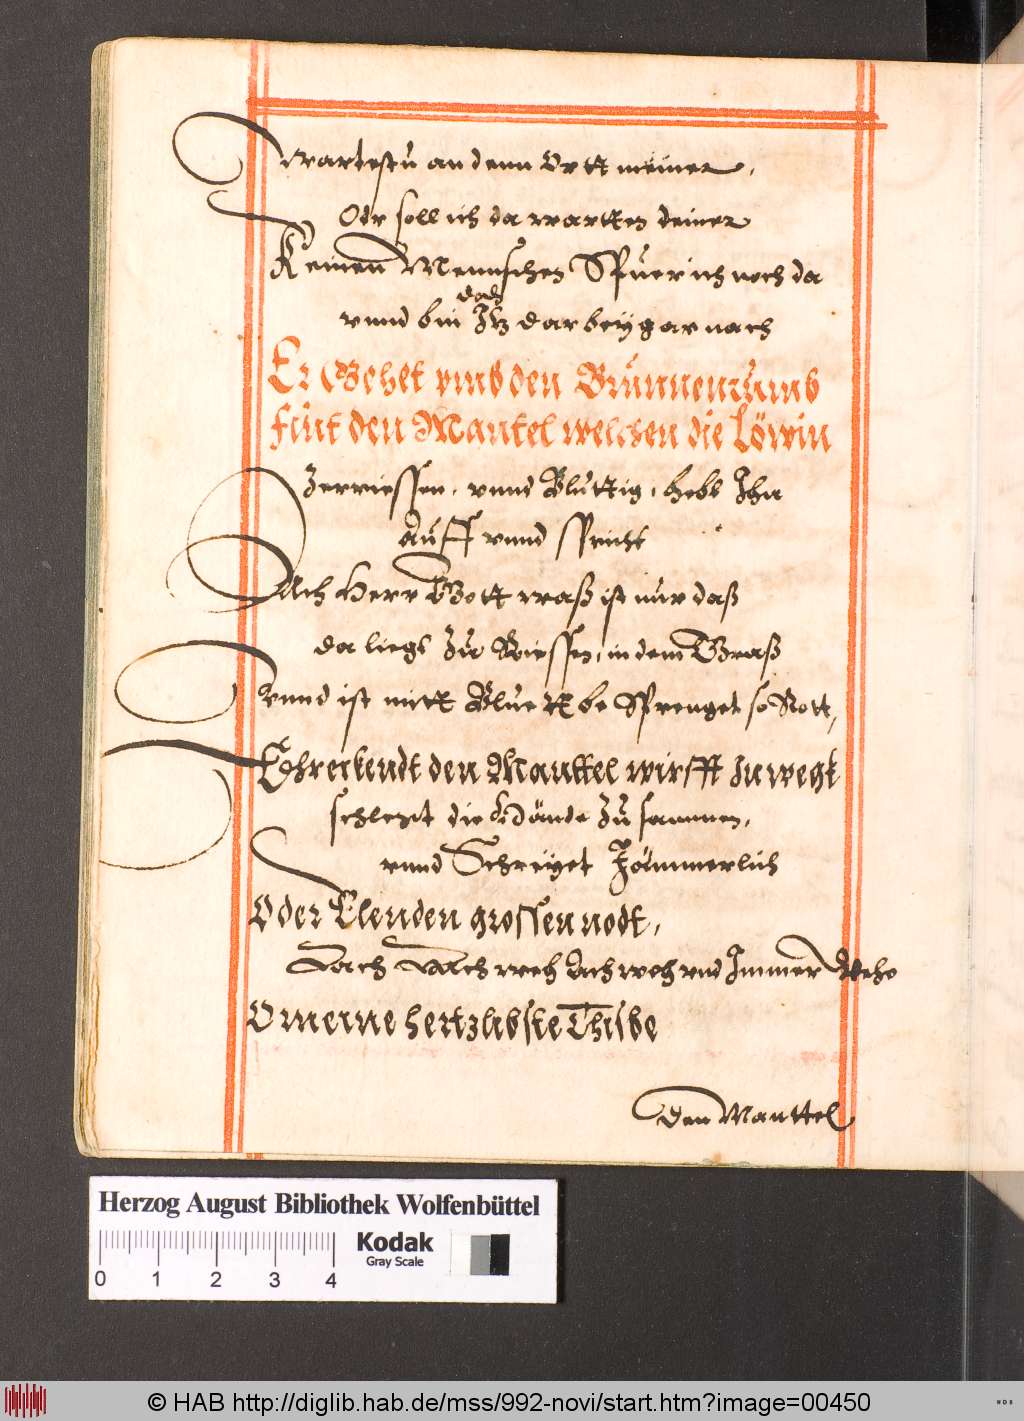 Wartestu an denn Ortt meiner,
Odr soll ich da wartten deiner
Keinen Mennschen Spuer ich noch da
doch
vnnd bin Itz dar bey gar nach
Er Gehet vmb den Brunnen rumb
fint den Mantel welchen die Löwin
Zerriessen, vnnd Bluttig, hebt Ihn
auff vnnd spricht
Ach Herr Gott waß ist nur daß
da liegt Zur Riessen, in dem Graß
vnnd ist mitt Bluett be Sprenget so Rott,
Schreckendt den Manttel wirfft zu wegk
schlegt die Hände Zu sammen,
vnnd Schreyet Jämmerlich
O der Elenden grossen nodt,
Ach weh Ach weh vnd Immer Wehe
O meine hertzlibste Thisbe
Den Manttel
Herzog August Bibliothek Wolfenbüttel
Kodak
Gray Scale
0 1 2 3 4
© HAB http://diglib.hab.de/mss/992-novi/start.htm?image=00450